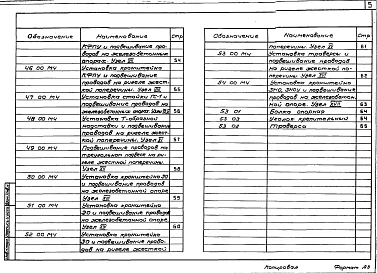 5
Обозначение
Наименование
Стр
КФПУ и подвешивание про-
водов на железобетонных
опорах. Узел
54
46 00 МЧ
Установка кронштейна
КФПУ и подвешивание
проводов на ригеле жест-
кой поперечины. Узел
55
47 00 МЧ
Установка стойки
подвешивание проводов на
железобетонных опорах
56
48 00 МЧ
Установка Т-образной
надставки и подвешивание
проводов на ригеле жест-
кой поперечины. Узел
57
49 00 МЧ
Подвешивание проводов на
треугольном подвесе на ри-
геле жесткой поперечины
Узел
58
50 00 МЧ
Установка кронштейна
и подвешивание проводов
на железобетонной опоре
Узел
59
51 00 МЧ
Установка кронштейна
и подвешивание проводов
на железобетонной опоре
Узел
60
52 00 МЧ
Установка кронштейна
и подвешивание прово-
дов на ригеле жесткой
Обозначение
Наименование
Стр
поперечины. Узел
61
53 00 МЧ
Установка траверсы и
подвешивание проводов
на ригеле жесткой по-
перечины. Узел
62
54 00 МЧ
Установка кронштейна
и подвешивание
проводов на железобетон-
ной опоре. Узел
63
53 01
Балка опорная
64
53 02
Уголок крепительный
64
Траверса
65
Копировал
Формат А3